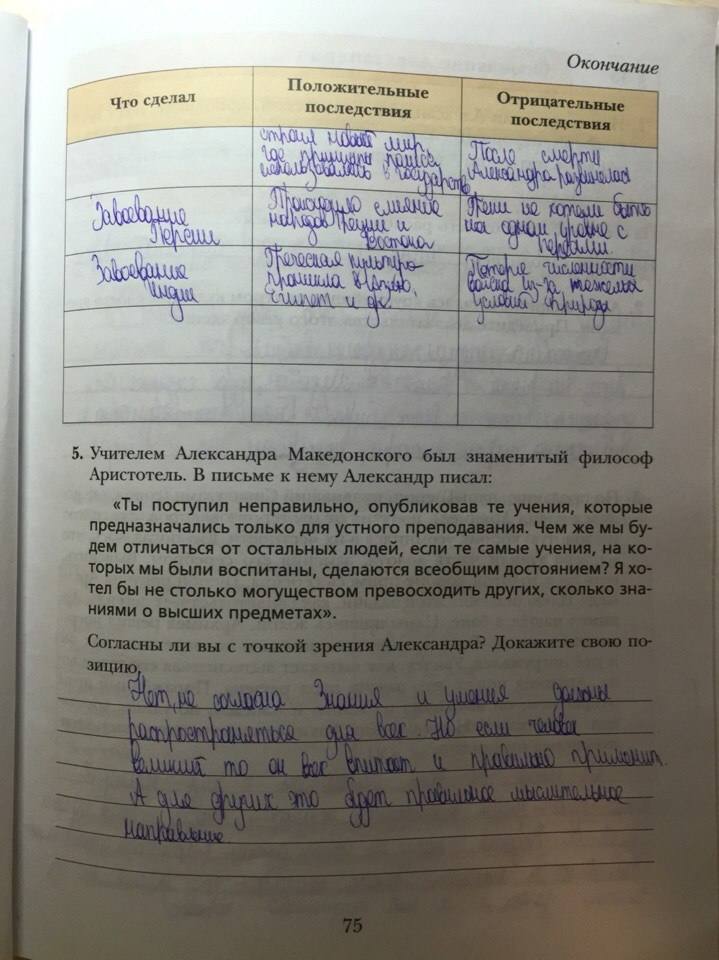 Окончание
Что сделал
Положительные
последствия
Отрицательные
последствия
строил новый мир
где принципы полиса
использовались в государстве
После смерти
Александра развилелась
Завоевание
Персии
Происходило слияние
народов Греции и
Востока
Греки не хотели быть
на одном уровне с
персами.
Завоевание
Индии
Греческая культура
проникла в Индию,
Египет и др.
Потеря численности
войска из-за тяжелых
условий природы
5. Учителем Александра Македонского был знаменитый философ
Аристотель. В письме к нему Александр писал:
«Ты поступил неправильно, опубликовав те учения, которые
предназначались только для устного преподавания. Чем же мы бу-
дем отличаться от остальных людей, если те самые учения, на ко-
торых мы были воспитаны, сделаются всеобщим достоянием? Я хо-
тел бы не столько могуществом превосходить других, сколько зна-
ниями о высших предметах».
Согласны ли вы с точкой зрения Александра? Докажите свою по-
зицию.
Нет, не согласна Знания и умения должны
распространяться для всех. Но если человек
великий то он всё впитает и правильно применит.
А для других это будет правильное мыслительное
направление.
75